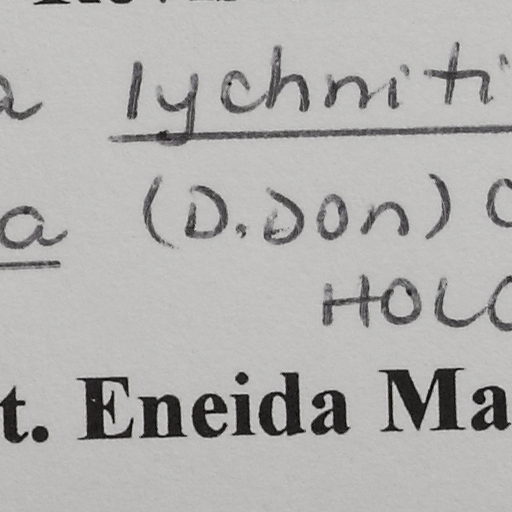 a lychniti
a (D.Don) C
HOLO
t. Eneida Ma